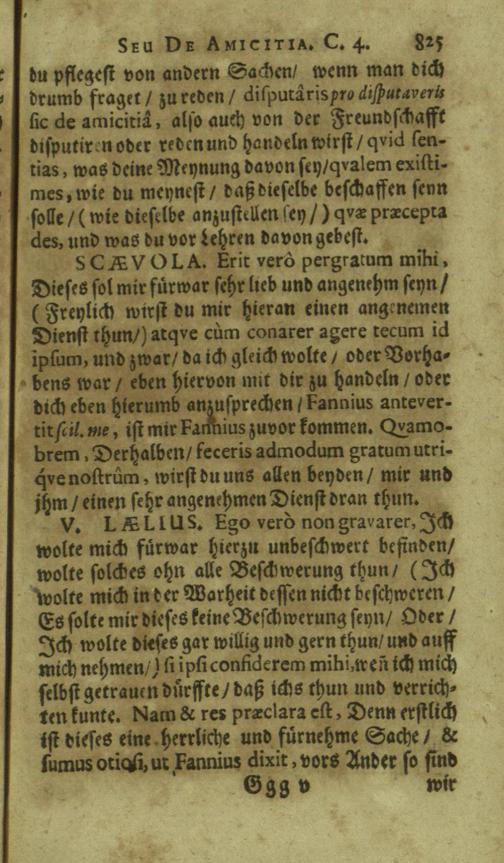 SEU DE AMICITIA. C. 4. 825
du pflegest von andern Sachen/ wenn man dich
drumb fraget / zu reden / disputâris pro disputaveris
sic de amicitiâ, also auch von der Freundschafft
disputiren oder reden und handeln wirst / qvid sen-
tias, was deine Meynung davon sey/qvalem existi-
mes, wie du meynest / daß dieselbe beschaffen seyn
solle / ( wie dieselbe anzustellen sey / ) qvæ præcepta
des, und was du vor Lehren davon gebest.
SCÆVOLA. Erit verò pergratum mihi,
Dieses sol mir fürwar sehr lieb und angenehm seyn/
( Freylich wirst du mir hieran einen angenemen
Dienst thun/) atqve cùm conarer agere tecum id
ipsum, und zwar/ da ich gleich wolte / oder Vorha-
bens war / eben hiervon mit dir zu handeln / oder
dich eben hierumb anzusprechen / Fannius antever-
tit scil. me, ist mir Fannius zuvor kommen. Qvamo-
brem, Derhalben/ feceris admodum gratum utri-
q́ve nostrûm, wirst du uns allen beyden / mir und
jhm / einen sehr angenehmen Dienst dran thun.
V. LÆLIUS. Ego verò non gravarer, Jch
wolte mich fürwar hierzu unbeschwert befinden/
wolte solches ohn alle Beschwerung thun/ ( Jch
wolte mich in der Warheit dessen nicht beschweren /
Es solte mir dieses keine Beschwerung seyn/ Oder /
Jch wolte dieses gar willig und gern thun/ und auff
mich nehmen/) si ipsi confiderem mihi, weñ ich mich
selbst getrauen dürffte / daß ichs thun und verrich-
ten kunte. Nam & res præclara est, Denn erstlich
ist dieses eine herrliche und fürnehme Sache / &
sumus otiosi, ut Fannius dixit, vors Ander so sind
Ggg v wir